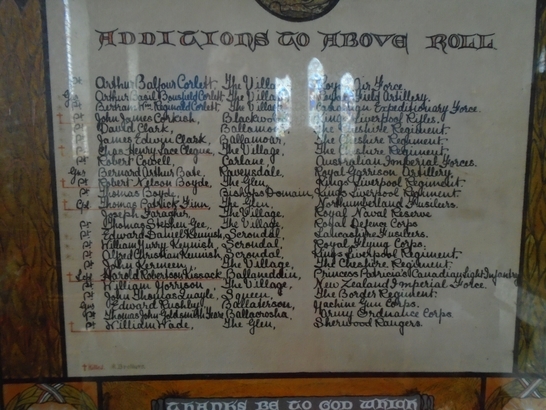 ADDITIONS TO ABOVE ROLL
Arthur Balfour Corlett, The Village, Royal Air Force.
Arthur Basil Bousfield Corlett The Village, Royal Field Artillery.
Bertram Wm. Reginald Corlett The Village, Expeditionary Force.
John James Corkish, Blackwood, Kings Liverpool Rifles.
David Clark, Ballamo Cheshire Regiment.
James Edwin Clark, Ballamoar, The Cheshire Regiment.
Chas. Henry The Village, The Cheshire Regiment.
Robert Cowell, Carlane, Australian Imperial Forces.
Bernard Arthur Ravensdale, Royal Garrison Artillery.
Robert Nelson Boyde, The Glen, Kings Liverpool Regiment.
Thomas Boyde, Bishops Domain, Kings Liverpool Regiment.
Cpl Thomas Patrick Finn, The Glen, Northumberland Fusiliers.
Joseph Faragher, The Village, Royal Naval Reserve
Thomas Stephen Gee, The Village, Royal Defence Corps
Edward Daniel Kennish, Scroundal, Lancashire Fusiliers.
William Furry Kennish, Scroundal, Royal Flying Corps.
Alfred Christian Kennish, Scroundal, Kings Liverpool Regiment.
John Kermeen, The Village, The Cheshire Regiment.
Sgt Harold Robertson Kissack, Princess Patricia's Canadian Light Infantry
William Morrison, The Village, New Zealand Imperial Force.
John Thomas Quayle, Squeen, The Border Regiment.
Edward Rushby, Ballaterson, Machine Gun Corps.
Thomas John Goldsmith Teare Ballacrosha, Army Ordnance Corps
William Wade, The Glen, Sherwood Rangers.
† Killed.
THANKS BE TO GOD WHICH